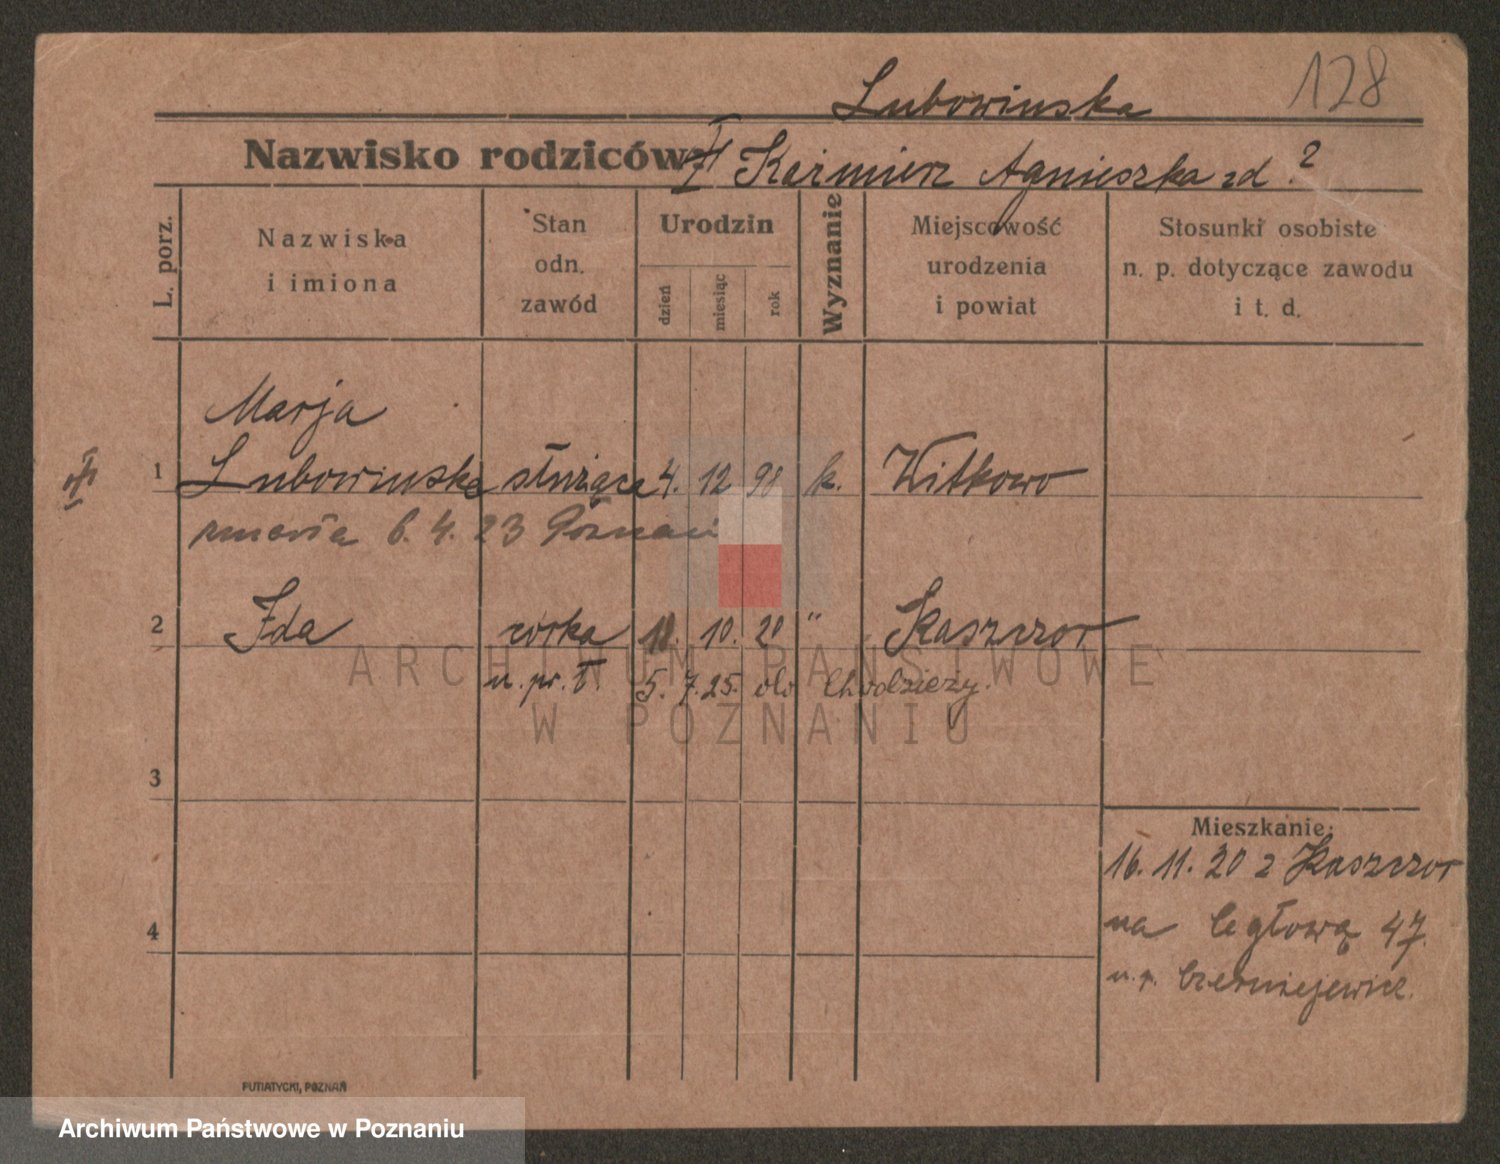 Lubowinska 128
Nazwisko rodziców: Kaźmierz Agnieszka zd ?
L. porz.
Nazwiska
i imiona
Stan
odn.
zawód
Urodzin
dzień
miesiąc
rok
Wyznanie
Miejscowość
urodzenia
i powiat
Stosunki osobiste
n. p. dotyczące zawodu
i t. d.
Marja
1 Lubowinska służąca 4. 12 90 k. Witkowo
zmarła 6. 4. 23 Poznań
2 Ida córka 11. 10. 20 " Kaszczor
5. 7. 25. do Chodzieży.
3
4
Mieszkanie:
16. 11. 20 z Kaszczor
na Ceglową 47.
u. p. Czerniejewicz.
PUTIATYCKI, POZNAŃ
ARCHIWUM PAŃSTWOWE
W POZNANIU
Archiwum Państwowe w Poznaniu